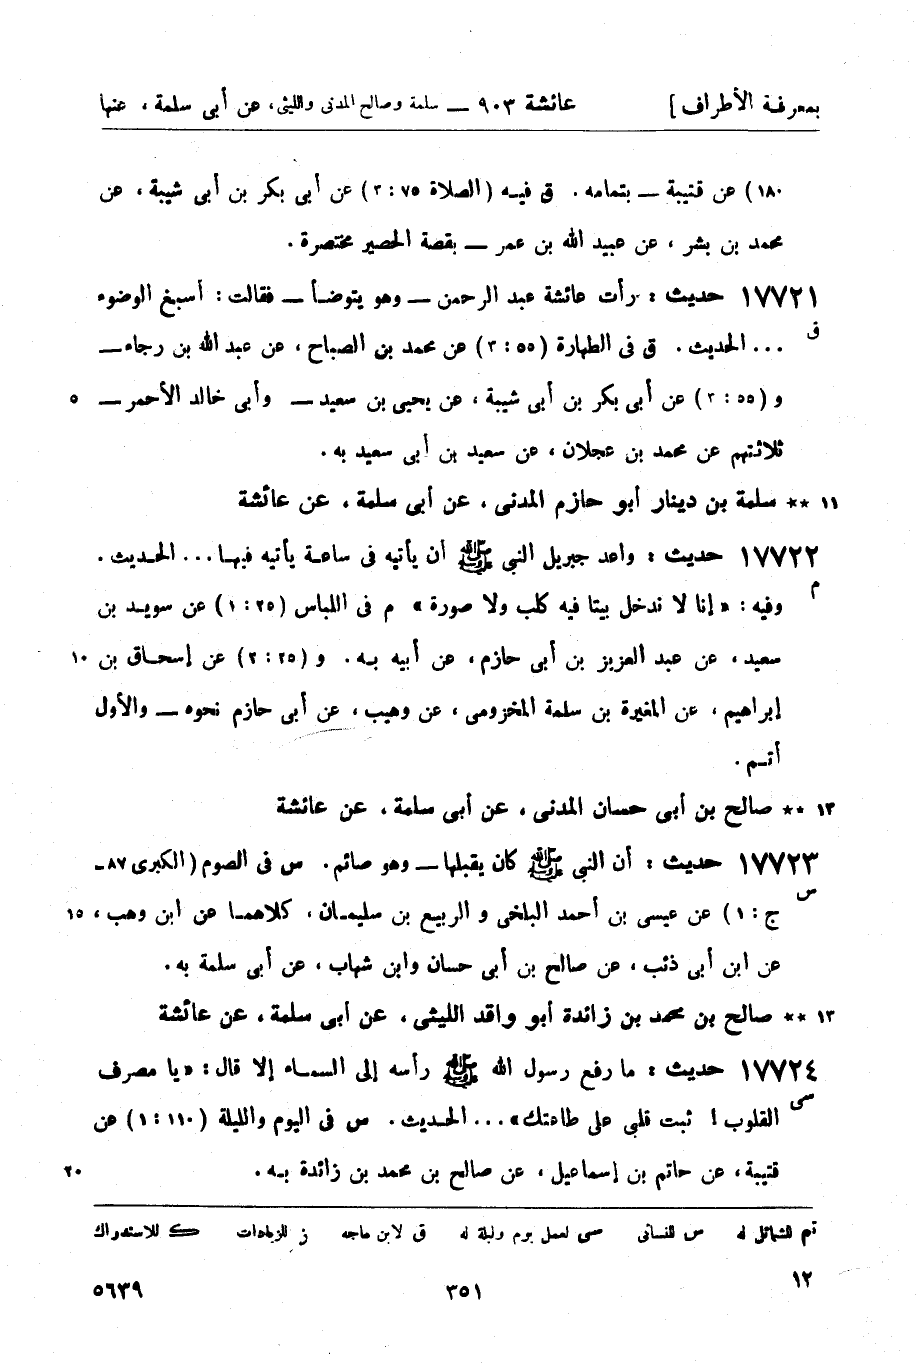 بمعرفة الأطراف] عائشة ٩٠٣ — سلمة وصالح المدنى والليثى، عن أبى سلمة، عنها
١٨٠) عن قتيبة — بتمامه. ق فيه (الصلاة ٧٥: ٢) عن أبى بكر بن أبى شيبة، عن
محمد بن بشر، عن عبيد الله بن عمر — بقصة الحصير مختصرة.
١٧٧٢١ حديث: رأت عائشة عبد الرحمن — وهو يتوضأ — فقالت: أسبغ الوضوء
ق ... الحديث. ق فى الطهارة (٥٥: ٢) عن محمد بن الصباح، عن عبد الله بن رجاء —
و (٥٥: ٢) عن أبى بكر بن أبى شيبة، عن يحيى بن سعيد — وأبى خالد الأحمر — ٥
ثلاثتهم عن محمد بن عجلان، عن سعيد بن أبى سعيد به.
١١ ** سلمة بن دينار أبو حازم المدنى، عن أبى سلمة، عن عائشة
١٧٧٢٢ حديث: واعد جبريل النبى ﷺ أن يأتيه فى ساعة يأتيه فيها... الحديث.
م وفيه: «إنا لا ندخل بيتا فيه كلب ولا صورة» م فى اللباس (٢٥: ١) عن سويد بن
سعيد، عن عبد العزيز بن أبى حازم، عن أبيه به. و (٢٥: ٢) عن إسحاق بن ١٠
إبراهيم، عن المغيرة بن سلمة المخزومى، عن وهيب، عن أبى حازم نحوه — والأول
أتم.
١٢ ** صالح بن أبى حسان المدنى، عن أبى سلمة، عن عائشة
١٧٧٢٣ حديث: أن النبى ﷺ كان يقبلها — وهو صائم. س فى الصوم (الكبرى ٨٧ -
س ج: ١) عن عيسى بن أحمد البلخى و الربيع بن سليمان، كلاهما عن ابن وهب، ١٥
عن ابن أبى ذئب، عن صالح بن أبى حسان وابن شهاب، عن أبى سلمة به.
١٣ ** صالح بن محمد بن زائدة أبو واقد الليثى، عن أبى سلمة، عن عائشة
١٧٧٢٤ حديث: ما رفع رسول الله ﷺ رأسه إلى السماء إلا قال: «يا مصرف
سى القلوب! ثبت قلبى على طاعتك»... الحديث. س فى اليوم والليلة (١١٠: ١) عن
قتيبة، عن حاتم بن إسماعيل، عن صالح بن محمد بن زائدة به. ٢٠
تم للشمائل له س للنسائى سى لعمل يوم وليلة له ق لابن ماجه ز للزيادات ك للاستدراك
١٢ ٣٥١ ٥٦٣٩